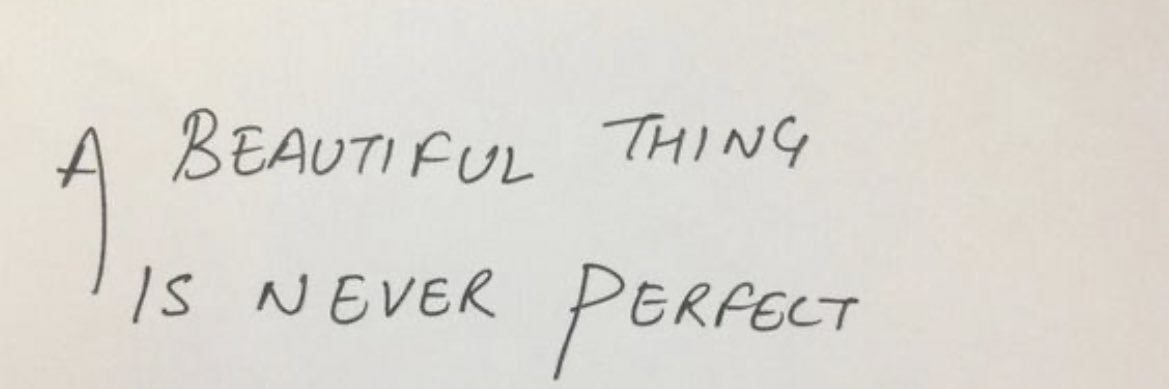 A BEAUTIFUL THING
IS NEVER PERFECT